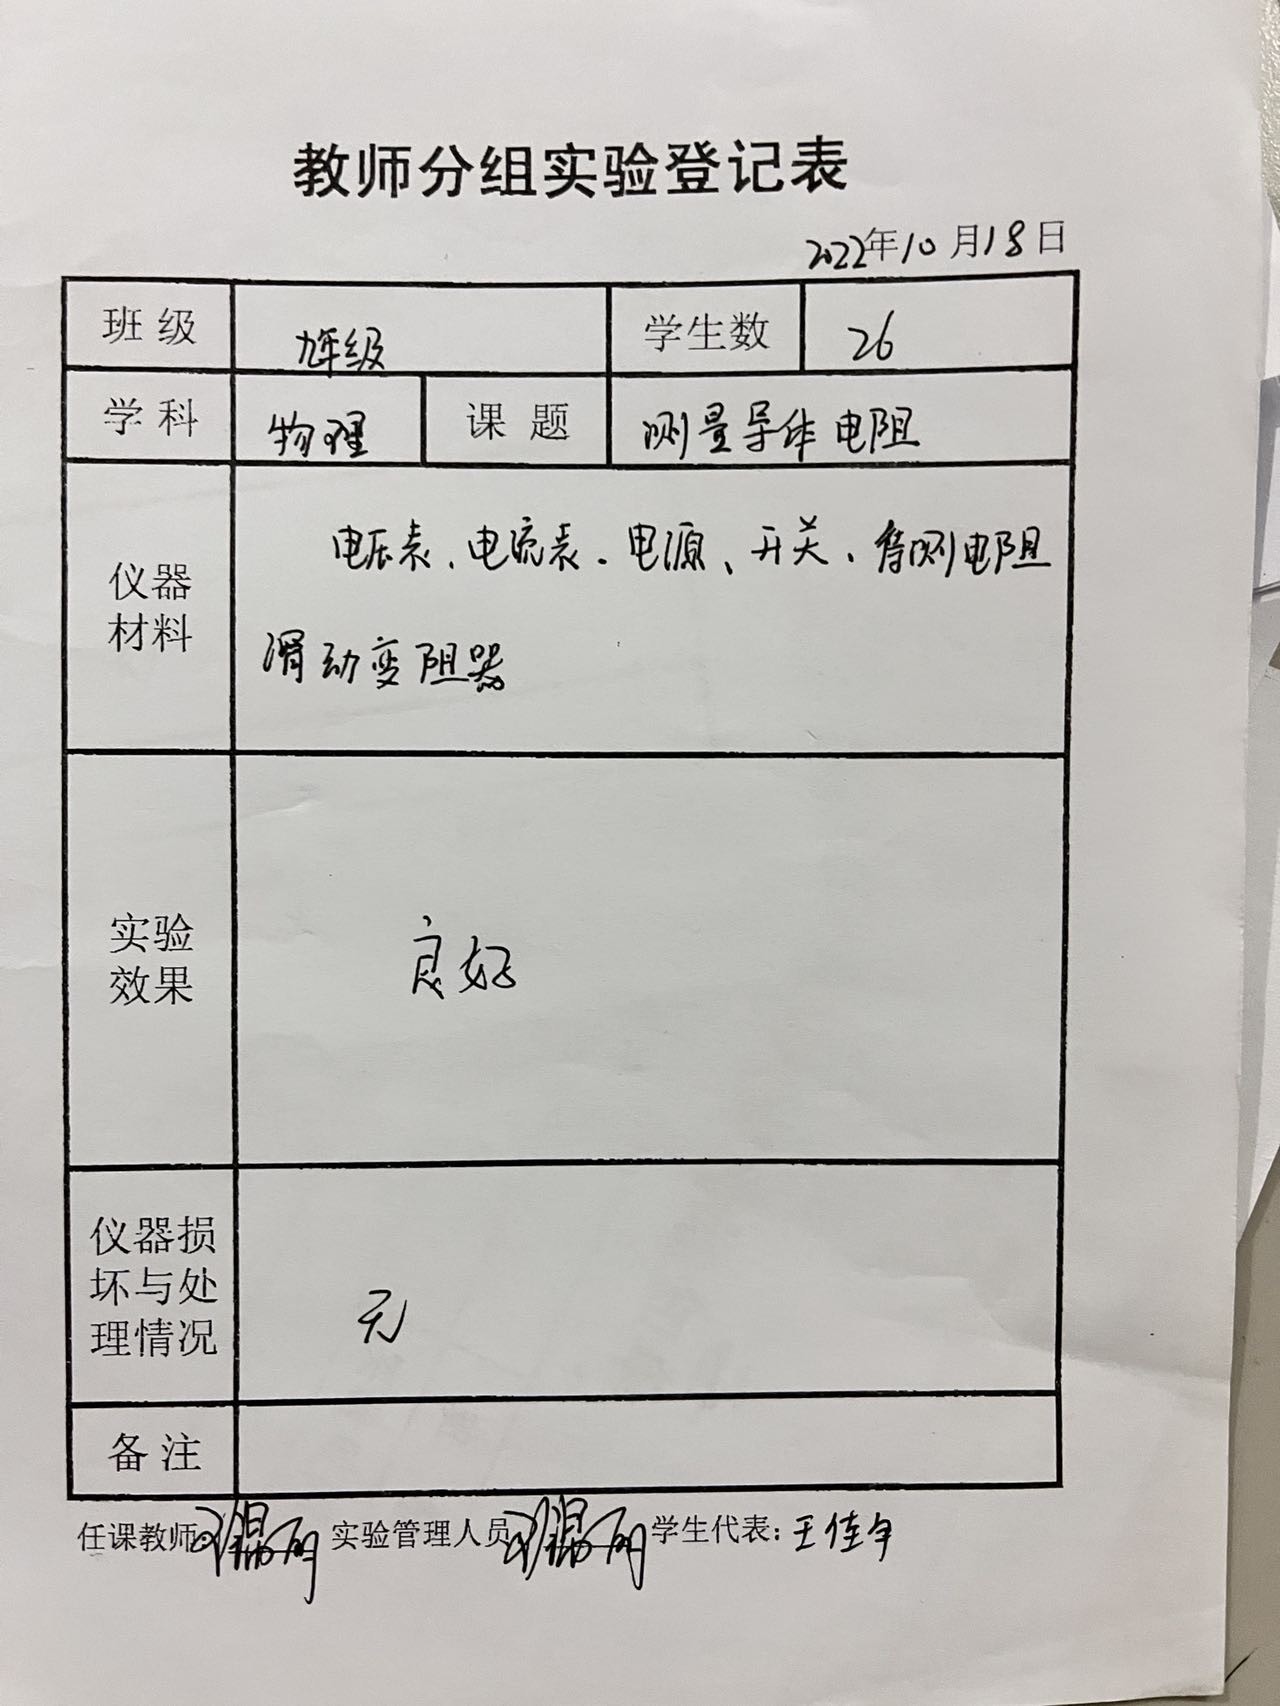 教师分组实验登记表
2022年10月18日
班级 九年级 学生数 26
学科 物理 课题 测量导体电阻
仪器
材料
电压表、电流表、电源、开关、待测电阻
滑动变阻器
实验
效果
良好
仪器损
坏与处
理情况
无
备注
任课教师: 实验管理人员 学生代表: 王佳